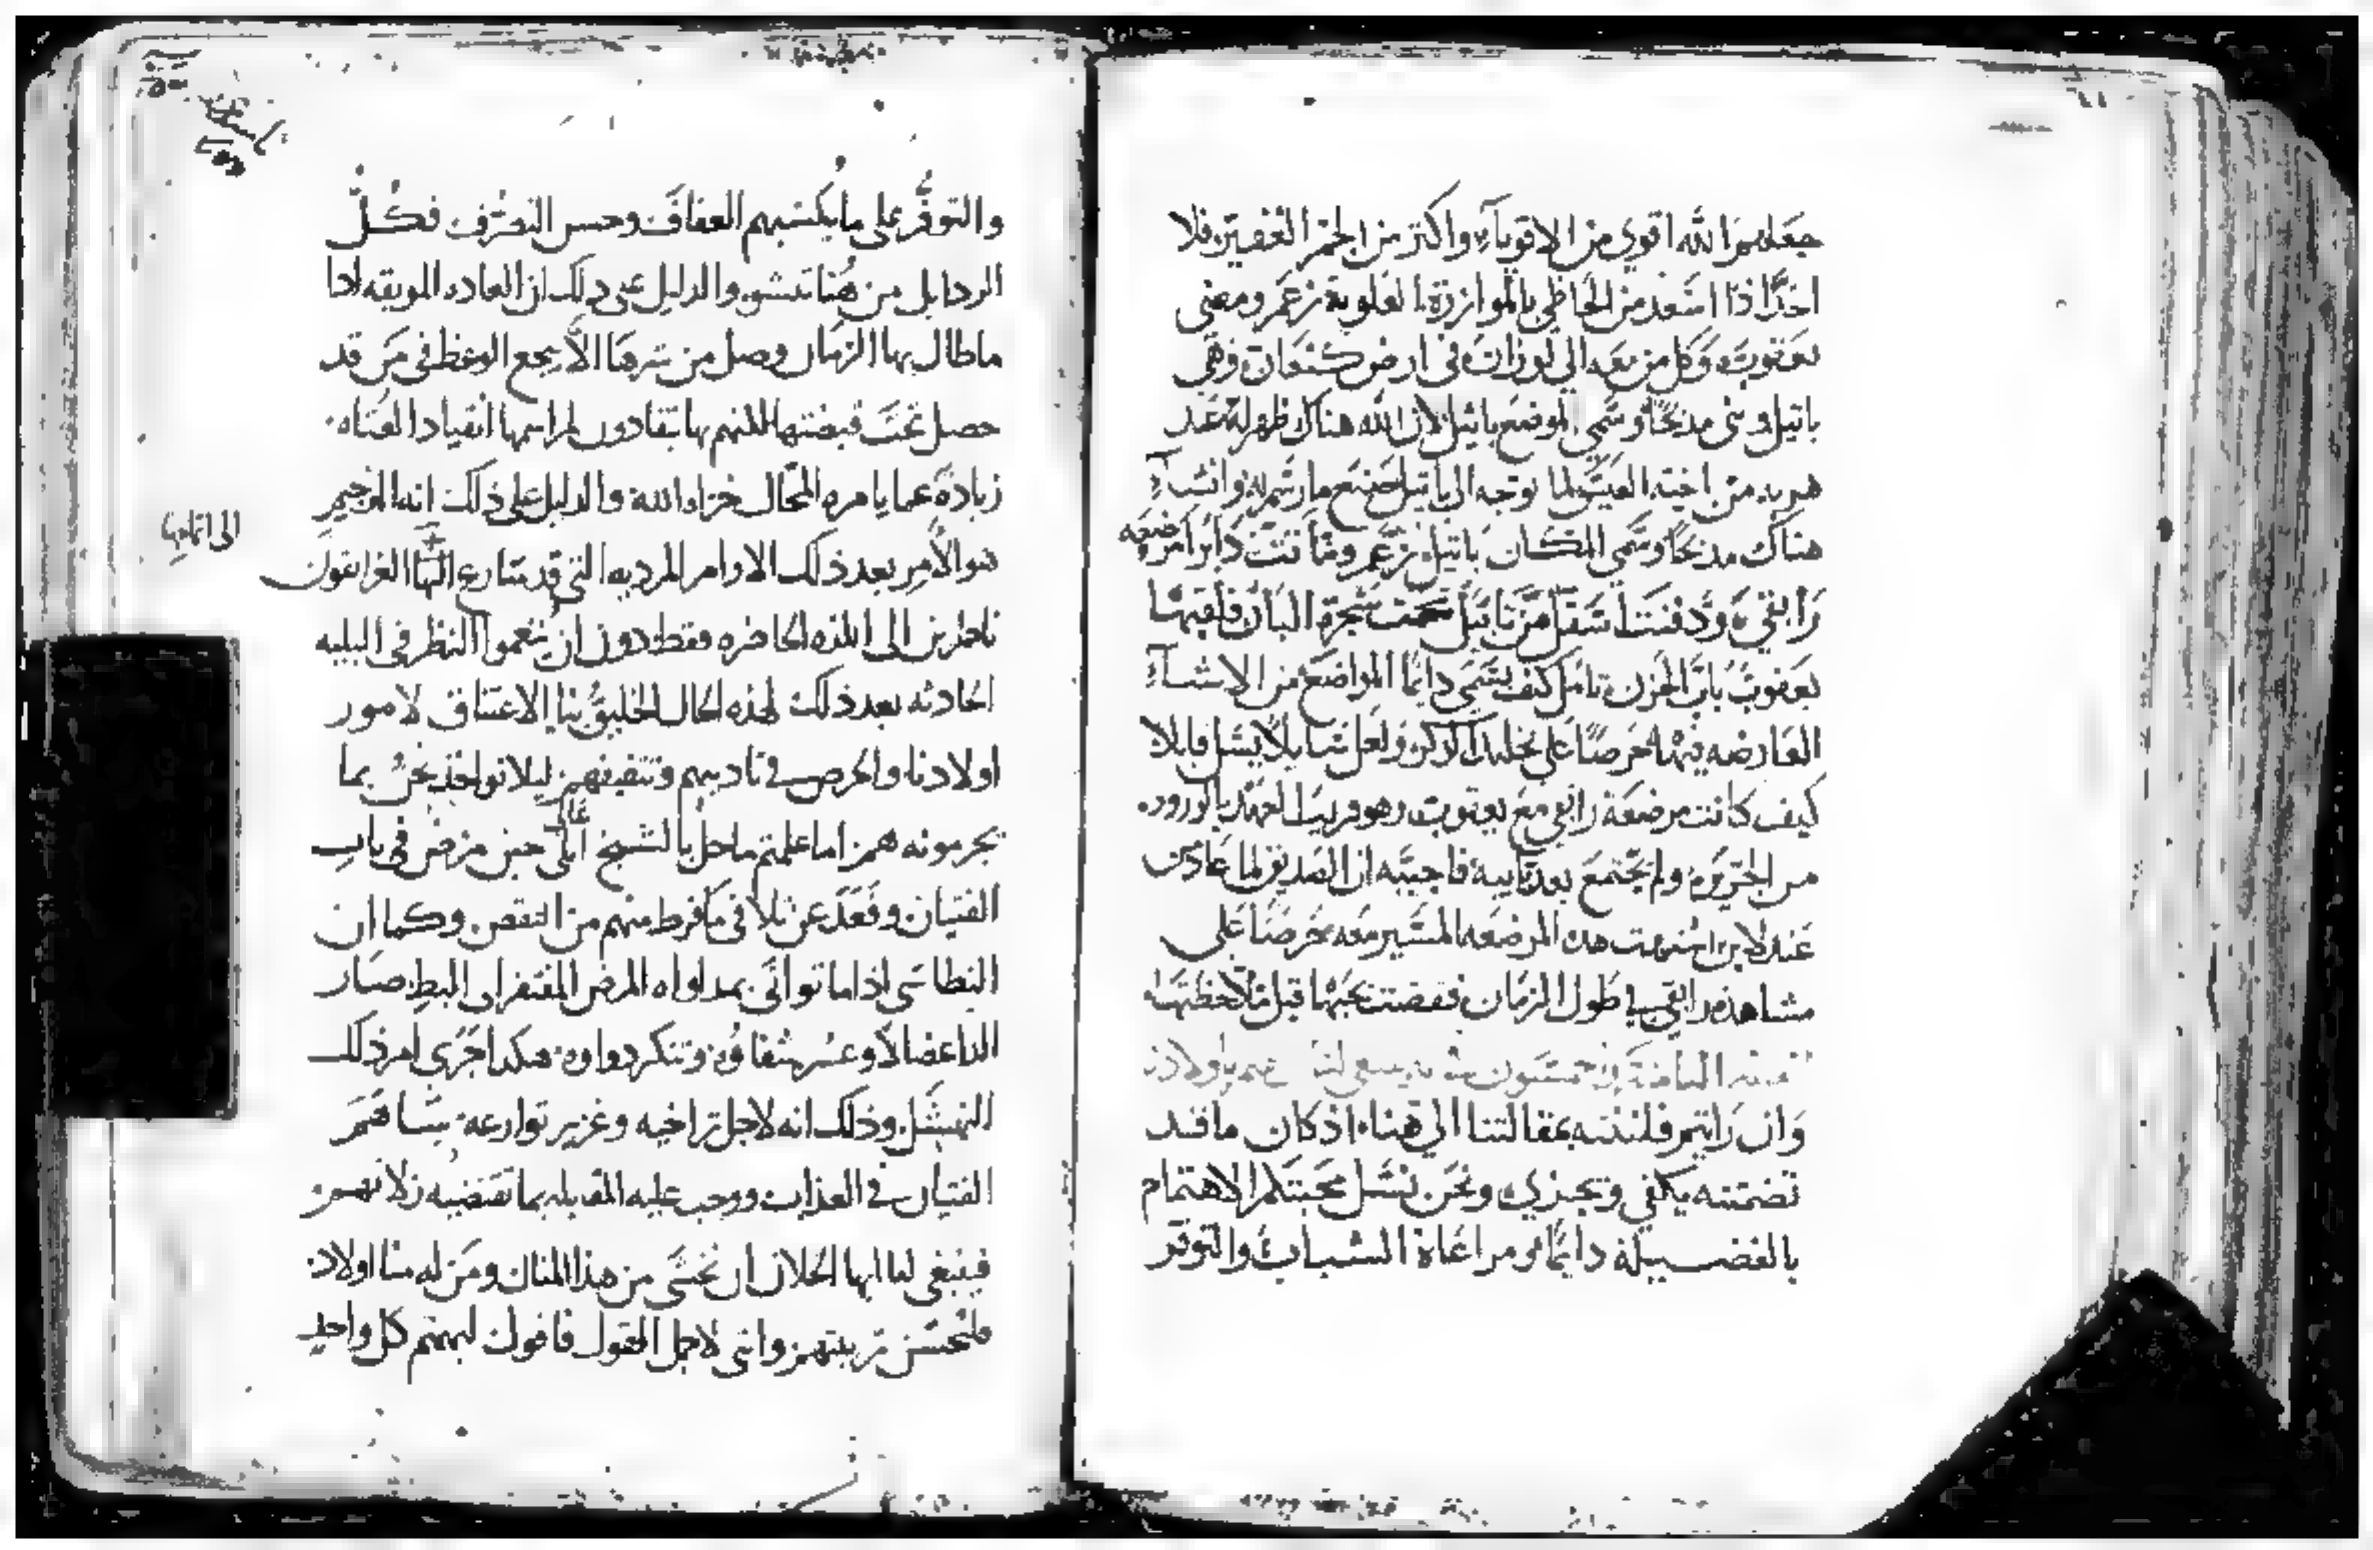 جعلهم الله اقوى من الاقوياء واكثر من الجم الغفير فلا
احدًا اذا اسعد من الحاظي بالموازرة العلوية نعم ومضى
يعقوب وكل من معه الى لوزات في ارض كنعان وهي
باتيل وبنى مذبحًا وسمى الموضع باتيل لان الله هناك ظهر له عند
هربه من اخيه العيس لما توجه الى باتيل صنع ما رسم له وانشاء
هناك مذبحًا وسمى المكان باتيل نعم وماتت دابرا مرضعه
رابقي ودفنت اسفل من باتيل تحت شجرة البان فلقبها
يعقوب بان الحزن تامل كيف يسمي دايمًا المواضع من الاشياء
العارضه فيها حرصًا على تخليد الذكر ولعل سايلًا يسل قايلا
كيف كانت مرضعة رابقي مع يعقوب وهو قريب العهد بالورود
من الجزيره ولم يجتمع بعد بابيه فاجيبه ان الصديق لما عاد من
عند لابن اشتهت هذه المرضعه المسير معه حرصًا على
مشاهدة رابقي في طول الزمان فقضت نحبها قبل ملاحظتها
العظه التاسعة وخمسون باولادنا
وان رايتم فلننته بمقالتنا الى هنا اذ كان ما قد
تضمنته يكفي ويجزي ونحن نسل محبتكم الاهتمام
بالفضيلة دايمًا ومراعاة الشباب والتوفر
والتوفر على ما يكسبهم العفاف وحسن التصرف فكل
الردايل من هنا تنشو والدليل على ذلك ان العاده الموبقه اذا
ما طال بها الزمان وصل من شرها الا ينجع الوعظ في من قد
حصل تحت قبضتها لكنهم ينقادون لمراسمها انقياد العتاه
زيادة عما يامره المحال خزاه الله والدليل على ذلك انه الرجيم
هو الآمر بعد ذلك الاوامر المرديه التي قد يتسارع اليها الغرانقون
ناظرين الى اللذه الحاضره فقط دون ان ينعموا النظر في البليه
الحادثه بعد ذلك لهذه الحال الخليق بنا الاعتناق لامور
اولادنا والحرص في تاديبهم وتثقيفهم ليلا نواخذ نحن بما
يجرمونه هم اما علمتم ما حل بالشيخ عالي حين مرض في باب
الفتيان وقعد عن تلافي ما فرط منهم من النقص وكما ان
النطاسي اذا ما توانى بمداواه المرض المفتقر الى البط صار
الدا عضالًا وعسر شفاوه وتنكر دواوه هكذا جرى امر ذلك
النهشل وذلك انه لاجل تراخيه وغزير توارعه ساهم
الفتيان في العذاب ووجب عليه المقابله بما تقتضيه زلاتهم
فينبغي لنا ايها الخلان ان نخشى من هذا المثال ومن له منا اولاد
فلنحسن تربيتهم واني لاجمل القول فاقول ليهتم كل واحد
الى اتمامها